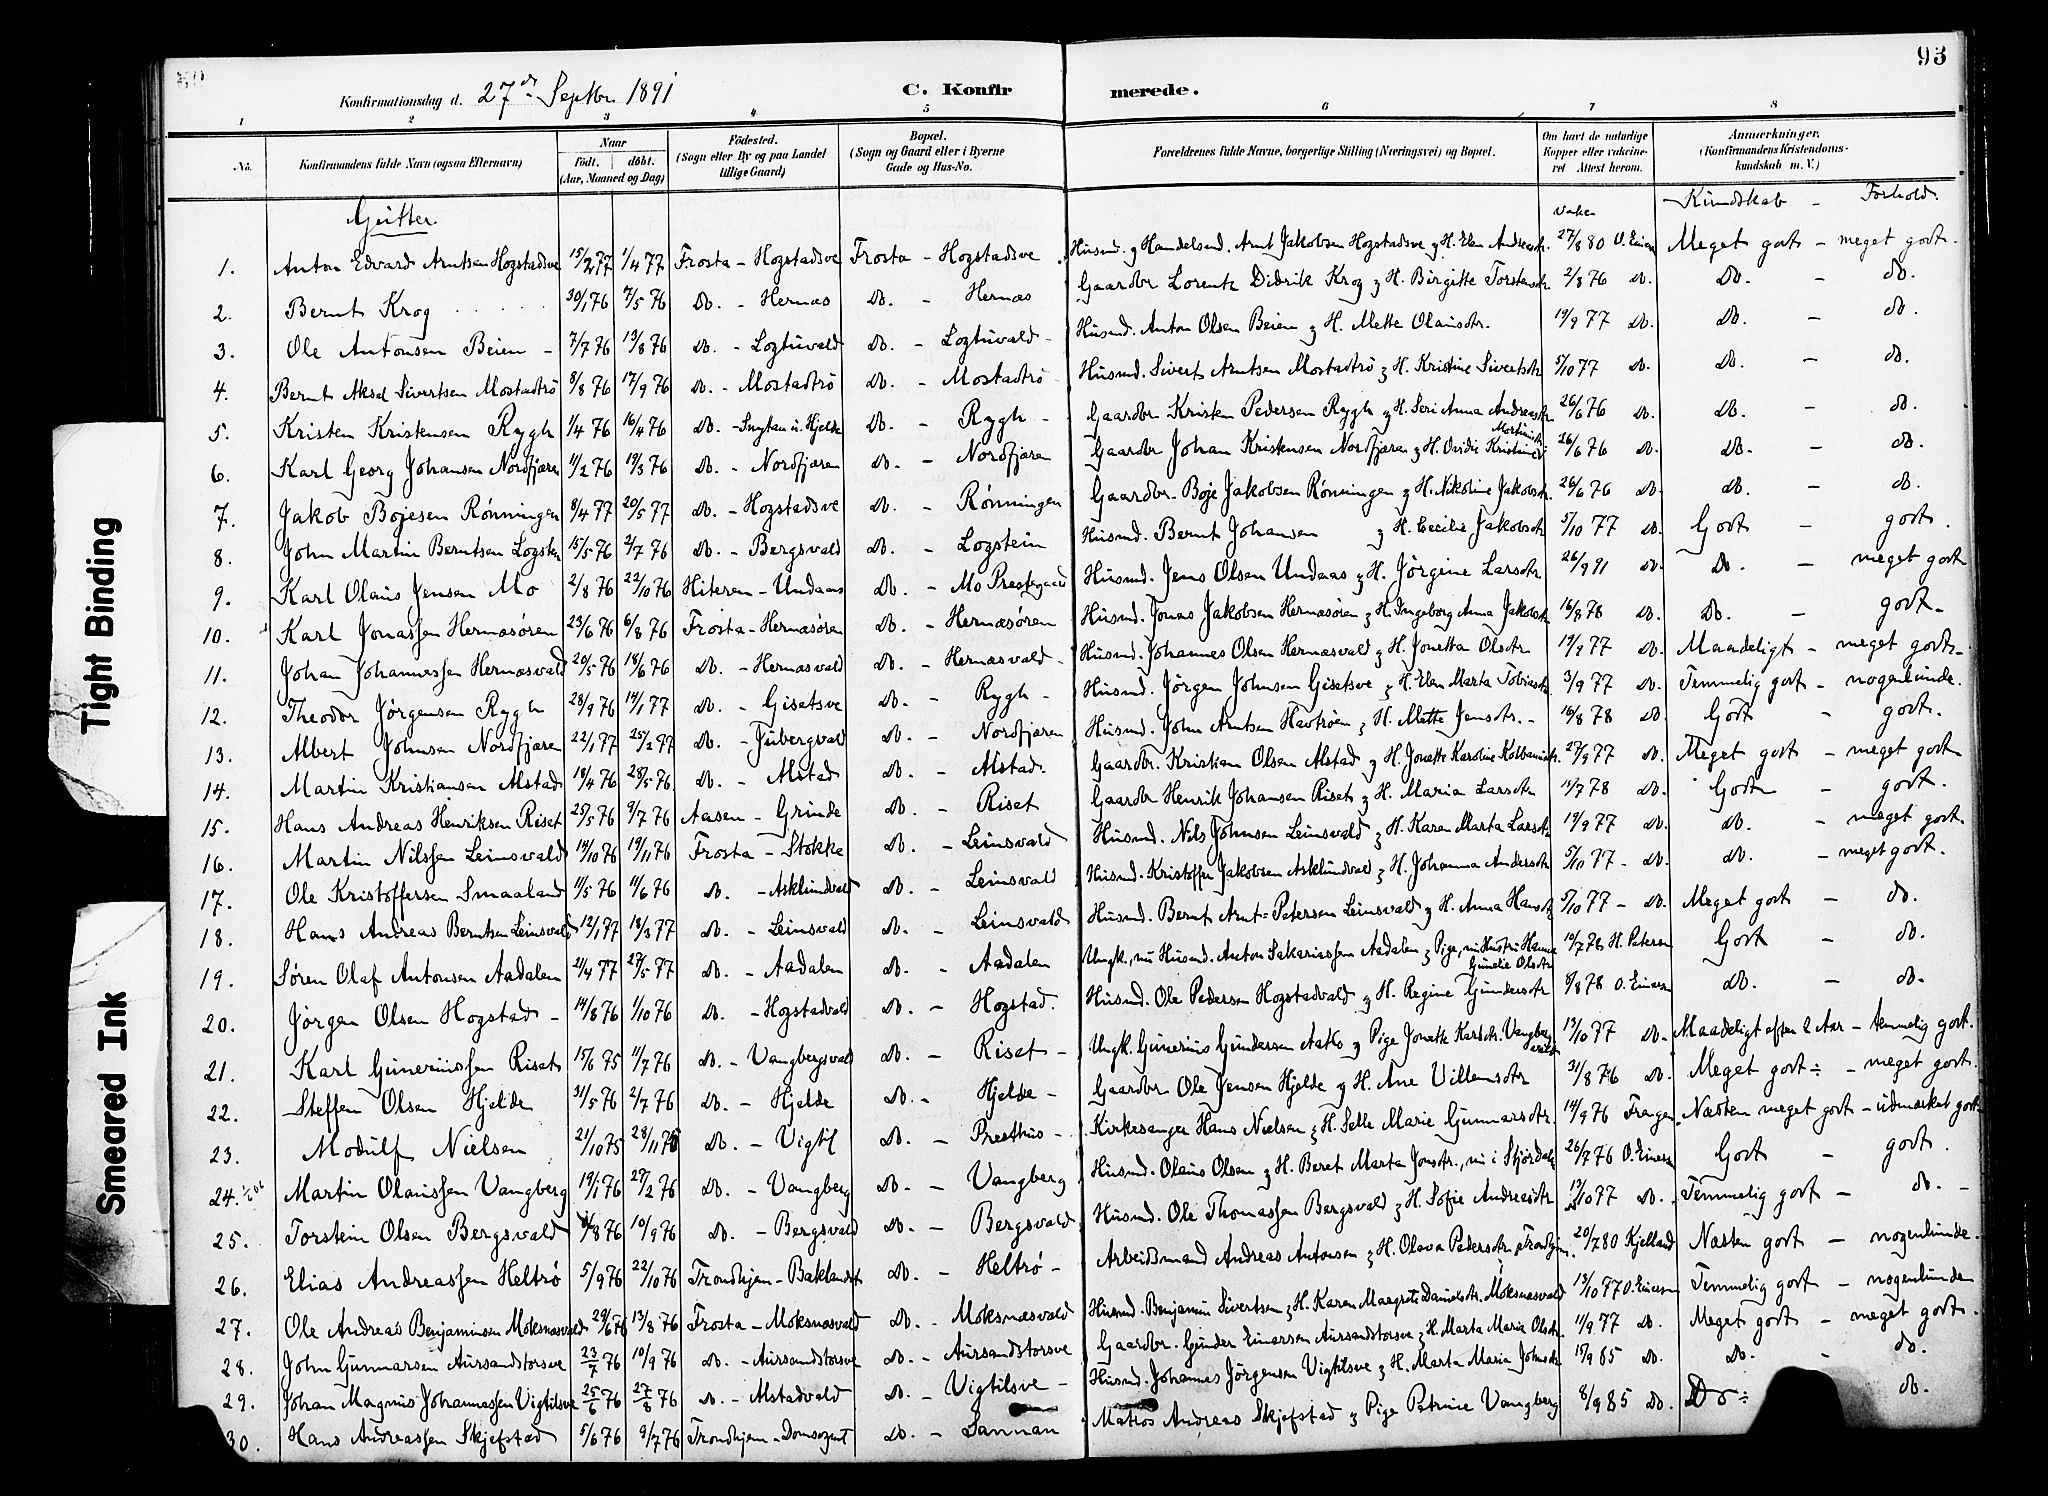 93
Konfirmationsdag d. 27de Septbr. 1891
C. Konfirmerede.
1 2 3 4 5 6 7 8
No. Konfirmandens fulde Navn (ogsaa Efternavn) Naar født. døbt. (Aar, Maaned og Dag) Fødested. (Sogn eller By og paa Landet tillige Gaard) Bopæl. (Sogn og Gaard eller i Byerne Gade og Hus-No. Forældrenes fulde Navne, borgerlige Stilling (Næringsvei) og Bopæl. Om havt de naturlige Kopper eller vakcineret Attest herom. Anmærkninger. (Konfirmandens Kristendomskundskab m. V.)
Gutter Vakc. Kundskab - Forhold.
1. Anton Edvard Arntsen Hogstadsve 15/2 77 1/4 77 Frosta - Hogstadsve Frosta - Hogstadsve Husmd. og Handelsmd. Arnt Jakobsen Hogstadsve og H. Elen Andreasdtr. 27/8 80 O. Einersen Meget godt - meget godt.
2. Bernt Krog 30/1 76 7/5 76 do. - Hernæs do. - Hernæs Gaardbr Lorentz Didrik Krog og H. Birgitte Torstensdtr 2/8 76 do. do. - do.
3. Ole Antonsen Beien - 7/7 76 13/8 76 do. - Logtuvald do. - Logtuvald - Husmd. Anton Olsen Beien og H. Mette Olausdtr. 19/9 77 do. do. - do.
4. Bernt Aksel Sivertsen Mostadtrø 8/8 76 17/9 76 do. - Mostadtrø do. - Mostadtrø Husmd. Sivert Arntsen Mostadtrø og H. Kristine Sivertsdtr 5/10 77 do. do. - do.
5. Kristen Kristensen Rygh 1/4 76 16/4 76 do. - Hjelde do. - Rygh - Gaardbr Kristen Pedersen Rygh og H. Seri Anna Andreasdtr. 26/6 76 do. do. - do.
6. Karl Georg Johansen Nordfjæren 11/2 76 19/3 76 do. - Nordfjæren do. - Nordfjæren Gaardbr Johan Kristensen Nordfjæren og H. Ovidie Kristine Martinsdtr. 26/6 76 do. do. - do.
7. Jakob Bojesen Rønningen 8/4 77 20/5 77 do. - Hogstadsve do. - Rønningen Gaardbr. Boje Jakobsen Rønningen og H. Nikoline Jakobsdtr. 26/6 76 do. do. - do.
8. John Martin Berntsen Logstein 15/5 76 2/7 76 do. - Bergsvald do. - Logstein Husmd. Bernt Johansen og H. Cecilie Jakobsdtr 5/10 77 do. Godt - godt.
9. Karl Olaus Jensen Mo 2/8 76 22/10 76 Hiteren - Undaas do. - Mo Prestegaard Husmd. Jens Olsen Undaas og H. Jørgine Larsdtr 26/9 91 do. do. - meget godt
10. Karl Jonassen Hernæsøren 23/6 76 6/8 76 Frosta - Hernæsøren do. - Hernæsøren Husmd. Jonas Jakobsen Hernæsøren og H. Ingeborg Anna Jakobsdtr 16/8 78 do. do. - godt -
11. Johan Johannessen Hernæsvald 20/5 76 18/6 76 do. - Hernæsvald do. - Hernæsvald - Husmd. Johannes Olsen Hernæsvald og H. Jonetta Olsdtr 19/9 77 do. Maadeligt - meget godt -
12. Theodor Jørgensen Rygh 28/9 76 14/1 77 do. - Gisetsve do. - Rygh - Husmd. Jørgen Johnsen Gisetsve og H. Elen Marta Tobiasdtr. 3/9 77 do. Temmelig godt - nogenlunde.
13. Albert Johnsen Nordfjæren 22/1 77 25/2 77 do. - Jubergvald do. - Nordfjæren Husmd. John Arntsen Havtrøen og H. Mette Jensdtr. - 16/8 78 do. Godt - godt.
14. Martin Kristiansen Alstad 18/4 76 28/5 76 do. - Alstad do. - Alstad. Gaardbr. Kristian Olsen Alstad og H. Jonette Karoline Kolbanusdtr. 27/9 77 do. Meget godt - meget godt
15. Hans Andreas Henriksen Riset 25/5 76 9/7 76 Aasen - Grinde do. - Riset Gaardbr Henrik Johansen Riset og H. Maria Larsdtr 11/7 78 do. Godt - godt.
16. Martin Nilssen Leinsvald 14/10 76 19/11 76 Frosta - Stokke do. - Leinsvald Husmd. Nils Johnsen Leinsvald og H. Karen Marta Larsdtr 19/9 77 do. do. - meget godt.
17. Ole Kristoffersen Smaaland 11/5 76 11/6 76 do. - Asklundvald do. - Leinsvald Husmd. Kristoffer Jakobsen Asklundvald og H. Johanna Andersdtr 5/10 77 - do. do. - meget godt.
18. Hans Andreas Berntsen Leinsvald 12/1 77 18/3 77 do. - Leinsvald do. - Leinsvald Husmd. Bernt Arnt-Petersen Leinsvald og H. Anna Hansdtr 5/10 77 - do. Meget godt - do.
19. Søren Olaf Antonsen Aadalen 21/4 77 27/5 77 do. - Aadalen do. - Aadalen Ungk., nu Husmd. Anton Sakariassen Aadalen og Pige, nu Hustru Hanna Gunelie Olsdtr 10/7 78 H. Petersen Godt - do.
20. Jørgen Olsen Hogstad - 14/8 76 1/10 76 do. - Hogstadvald do. - Hogstad. Husmd. Ole Pedersen Hogstadvald og H. Regine Gundersdtr 8/8 78 O. Einersen do. - do.
21. Karl Guneriussen Riset 15/6 75 11/7 76 do. - Vangbergsvald do. - Riset - Ungk. Gunerius Gundersen Aatlo og Pige Jonette Karlsdtr. Vangberg 13/10 77 do. Maadeligt efter 2 Aar - temmelig godt.
22. Steffen Olsen Hjelde 31/5 76 2/7 76 do. - Hjelde do. - Hjelde - Gaardbr Ole Jensen Hjelde og H. Ane Villumsdtr 31/8 76 do. Meget godt ÷ - meget godt.
23. Modulf Nielsen 21/10 75 28/11 75 do. - Vigtil do. - Presthus - Kirkesanger Hans Nielsen og H. Selle Marie Gunnarsdtr. 14/9 76 Næsten meget godt - udmærket godt
24. Martin Olaussen Vangberg 19/1 76 27/2 76 do. - Vangberg do. - Vangberg Husmd. Olaus Olsen og H. Beret Marta Jonsdtr., nu i Stjørdalen 26/7 76 O. Einersen Godt - godt.
25. Torstein Olsen Bergsvald 6/8 76 10/9 76 do. - Bergsvald do. - Bergsvald Husmd. Ole Thomassen Bergsvald og H. Sofie Andreasdtr 13/10 77 do. Temmelig godt - do. -
26. Elias Andreassen Heltrø 5/9 76 22/10 76 Trondhjem - Baklandet do. - Heltrø - Arbeidsmand Andreas Antonsen og H. Olava Pedersdtr, Trondhjem. 20/7 80 Kjelland Næsten godt - nogenlunde.
27. Ole Andreas Benjaminsen Moksnæsvald 29/6 76 13/8 76 Frosta - Moksnæsvald do. - Moksnæsvald Husmd. Benjamin Sivertsen og H. Karen Margrete Danielsdtr. Moksnæsvald 13/10 77 O. Einersen Temmelig godt - nogenlunde
28. John Gunnarsen Aursandstorsve 23/7 76 10/9 76 do. - Aursandstorsve do. - Aursandstorsve Gaardbr. Gunder Einarsen Aursandstorsve og H. Marta Maria Olsdtr. 11/9 77 do. Meget godt - meget godt.
29. Johan Magnus Johannessen Vigtilsve 25/6 76 27/8 76 do. - Alstadvald do. - Vigtilsve - Husmd. Johannes Jørgensen Vigtilsve og H. Marta Maria Johnsdtr 15/9 85 do. do. - do.
30. Hans Andreassen Skjefstad 5/6 76 9/7 76 Trondhjem - Domsognet do. - Sannan Matros Andreas Skjefstad og Pige Petrine Vangberg 8/9 85 do. Do ÷ do.
Tight Binding
Smeared Ink